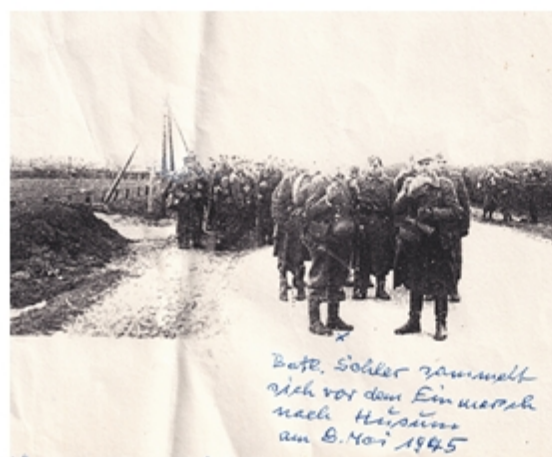 Batl. Sohler sammelt
sich vor dem Einmarsch
nach Husum
am 8. Mai 1945